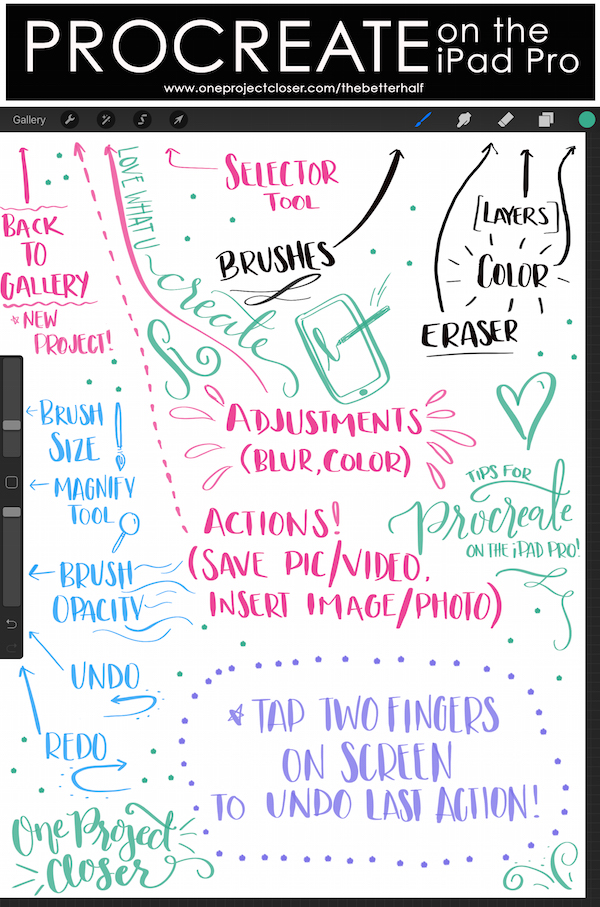 PROCREATE on the iPad Pro
www.oneprojectcloser.com/thebetterhalf
Gallery
BACK
TO
GALLERY
* NEW
PROJECT!
LOVE WHAT U
create
SELECTOR
TOOL
BRUSHES
[LAYERS]
COLOR
ERASER
ADJUSTMENTS
(BLUR, COLOR)
BRUSH
SIZE
MAGNIFY
TOOL
BRUSH
OPACITY
UNDO
REDO
ACTIONS!
(SAVE PIC/VIDEO,
INSERT IMAGE/PHOTO)
TIPS FOR
Procreate
ON THE iPAD PRO!
* TAP TWO FINGERS
ON SCREEN
TO UNDO LAST ACTION!
One Project
Closer